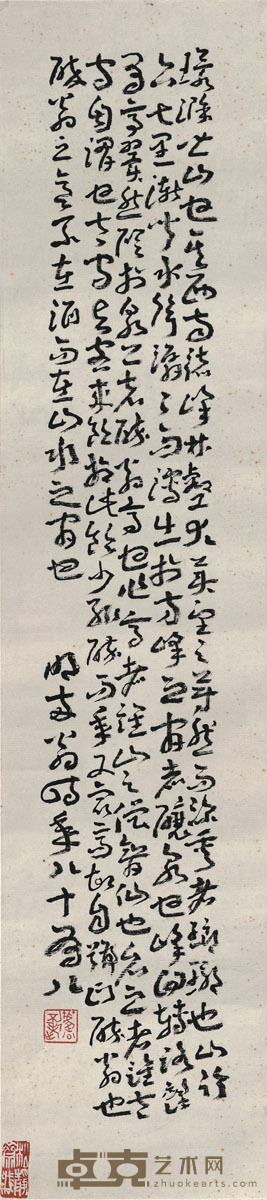 環滁皆山也其西南諸峰林壑尤美望之蔚然而深秀者瑯琊也山行
六七里漸聞水聲潺〻而瀉出於兩峰之間者釀泉也峰回轉路
有亭翼然臨於泉上者醉翁亭也作亭者誰山之僧智仙也名之者誰太
守自謂也太守與客來飲於此飲少輒醉而年又最高故自號曰醉翁也
醉翁之意不在酒而在山水之間也
明兩翁時年八十有八
卓克艺术网
www.zhuokearts.com